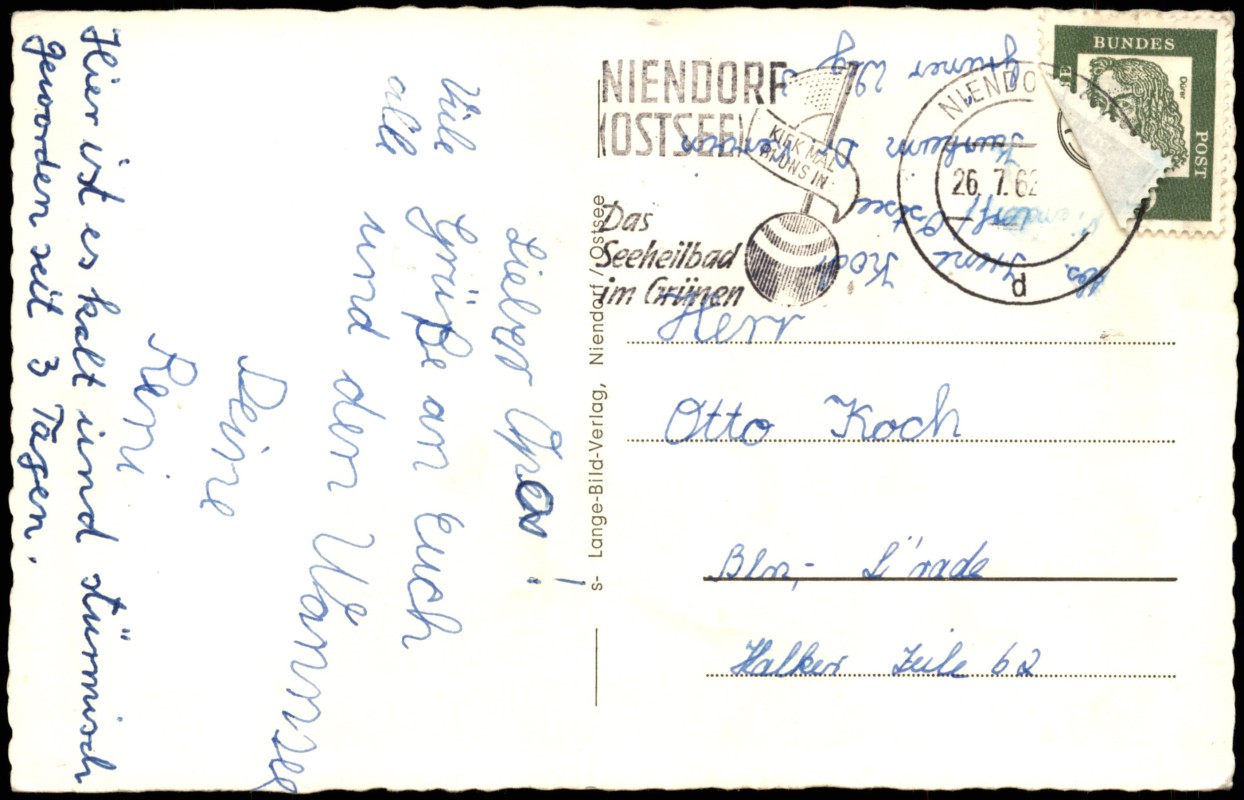 Lieber Opa!
Viele Grüße an Euch
alle und den Wannsee
Deine
Reni
Hier ist es kalt und stürmisch
geworden seit 3 Tagen.
s- Lange-Bild-Verlag, Niendorf/Ostsee
NIENDORF
OSTSEE
KIEK MAL
BI UNS IN
Das
Seeheilbad
im Grünen
NIENDO
26.7.62
d
BUNDES
POST
Dürer
Abs. Irene Koch
Niendorf/Ostsee
Grüner Weg
Herr
Otto Koch
Bln,- L'rade
Halker Zeile 62